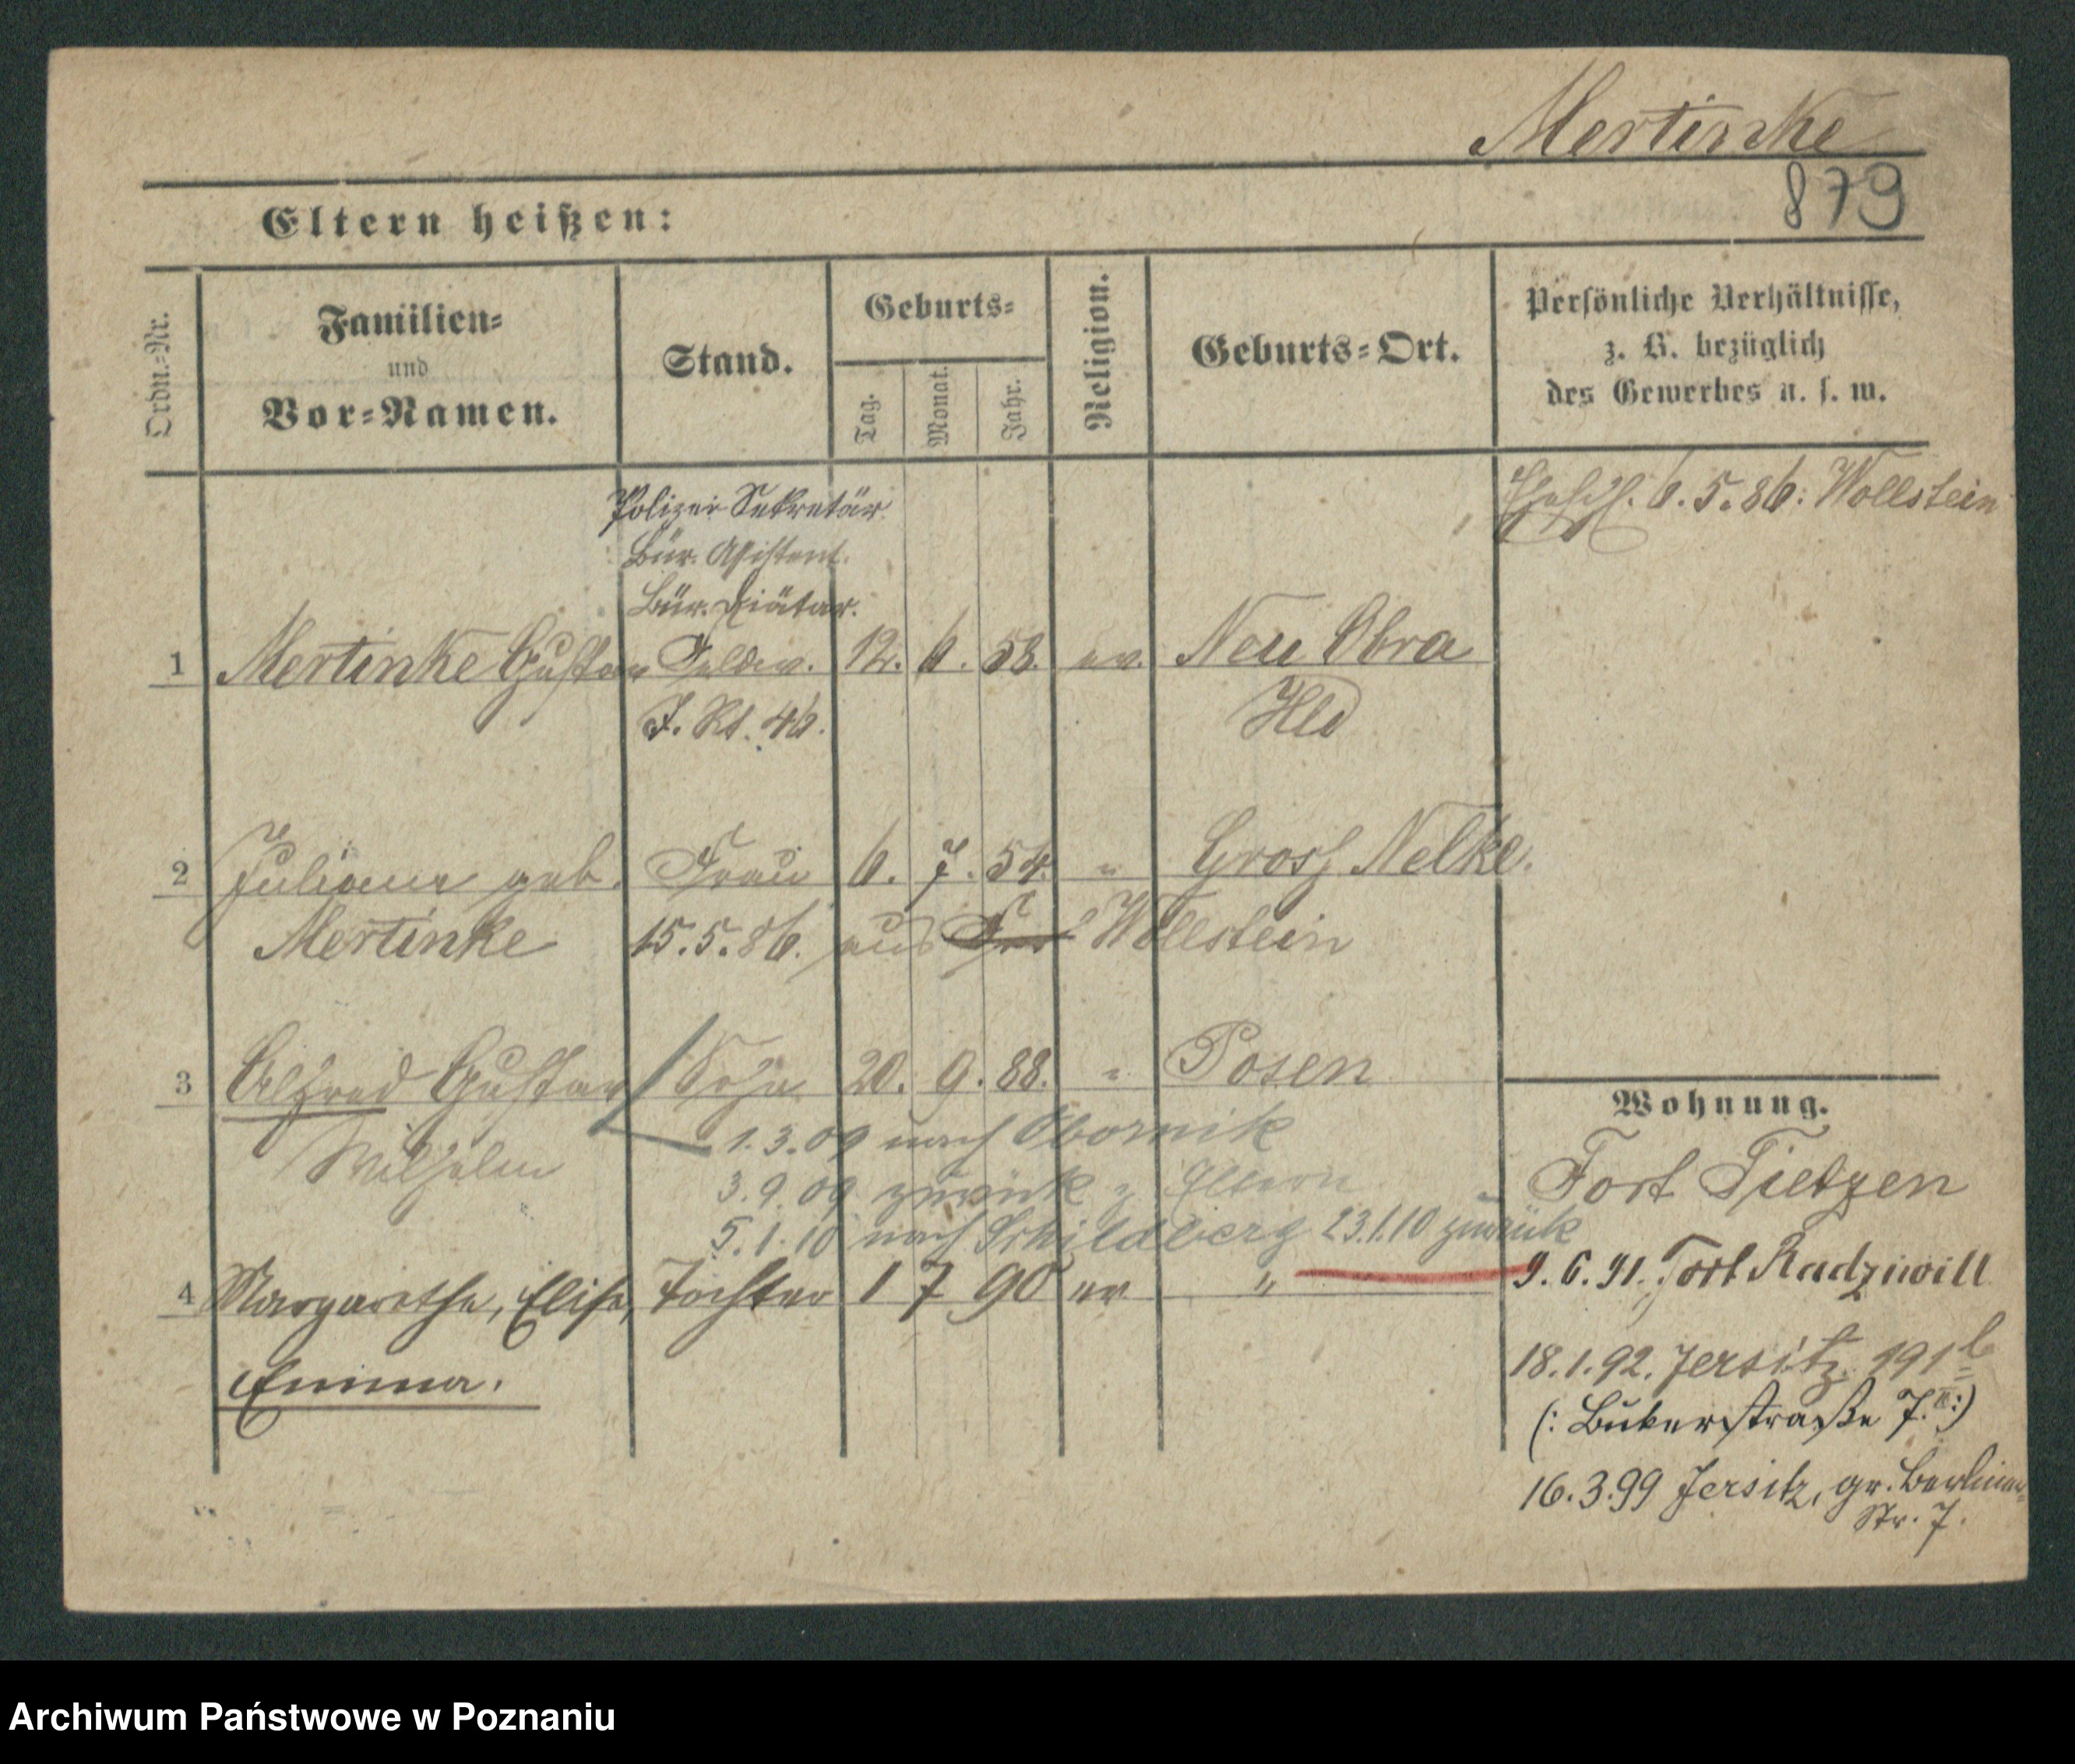 Mertinke
879
Eltern heißen:
Ordn.-Nr.
Familien-
und
Vor-Namen.
Stand.
Geburts-
Tag.
Monat.
Jahr.
Religion.
Geburts-Ort.
Persönliche Verhältnisse,
z. B. bezüglich
des Gewerbes u. s. w.
6.5.86. Wollstein
Polizei Sekretär
Bür. Assistent.
Bür. Diätar.
1 Mertinke Gustav Feldw. 12. 6. 58. ev. Neu Obra
J. Rt. 46. Hld
2 Juliane geb. Frau 6. 7. 54. " Gross Nelke.
Mertinke 15.5.86. aus Wollstein
3 Alfred Gustav Sohn 20. 9. 88. " Posen
Wilhelm
1.3.09 nach Obornik
3.9.09 zurück z Eltern
5.1.10 nach Schildberg 23.1.10 zurück
4 Margarethe, Elise, Tochter 1 7 90 ev "
Emma.
Wohnung.
Fort Tietzen
9.6.91. Fort Radziwill
18.1.92. Jersitz 191b
(: Bukerstraße 7. II :)
16.3.99 Jersitz, gr. Berliner-
Str. 7.
Archiwum Państwowe w Poznaniu